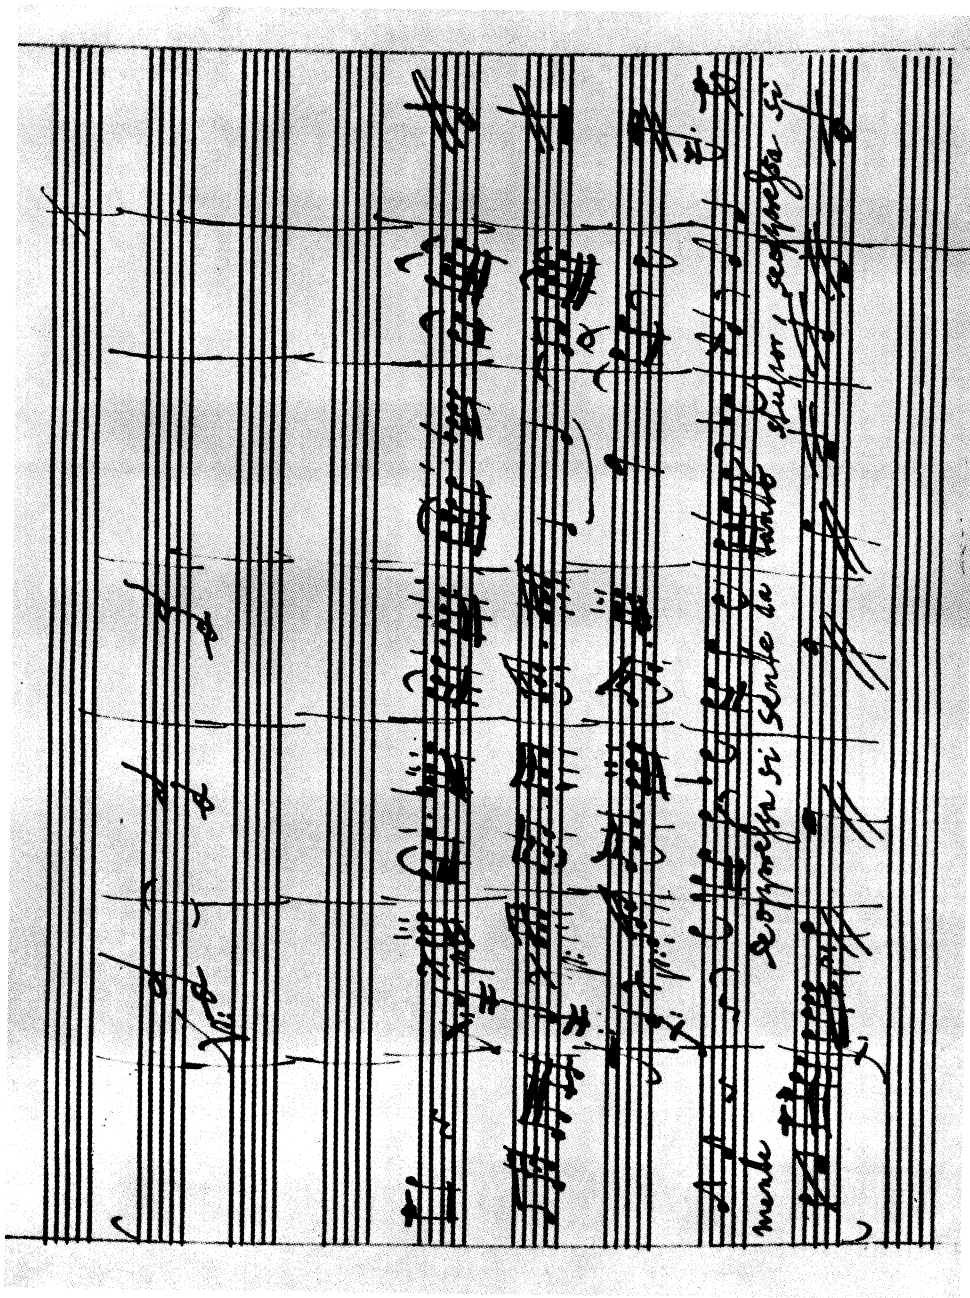 mente scoppressa si sente da tanto stupor, scoppressa si